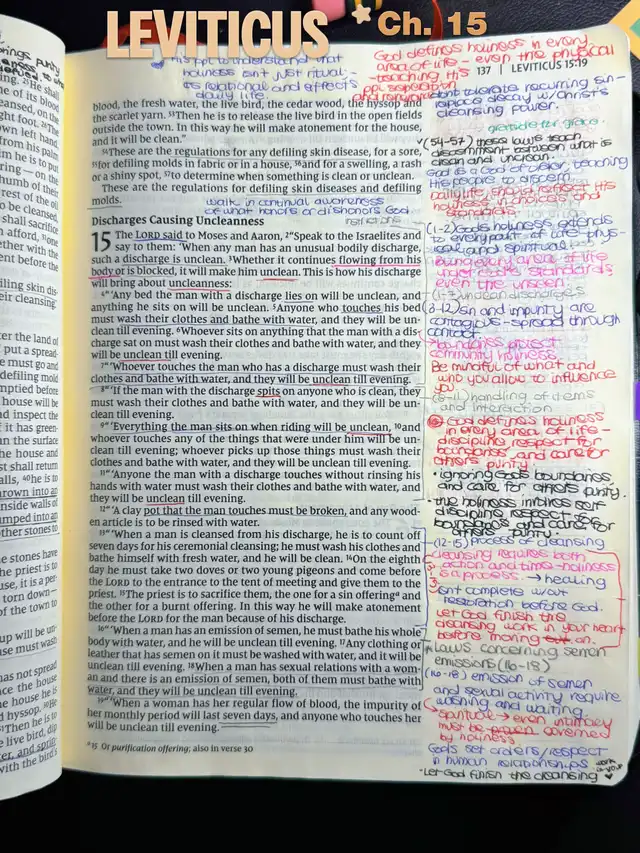 LEVITICUS Ch. 15
His ppl to understand that
holiness isn't just ritual-
its relational and effects
daily life
God defines holiness in every
area of life - even the physical
-teaching His
ppl separation
and
137 | LEVITICUS 15:19
blood, the fresh water, the live bird, the cedar wood, the hyssop and
the scarlet yarn. 53Then he is to release the live bird in the open fields
outside the town. In this way he will make atonement for the house,
and it will be clean."
54These are the regulations for any defiling skin disease, for a sore,
55for defiling molds in fabric or in a house, 56and for a swelling, a rash
or a shiny spot, 57to determine when something is clean or unclean.
These are the regulations for defiling skin diseases and defiling
molds.
walk in continual awareness
of what honors or dishonors God
Discharges Causing Uncleanness
15 The LORD said to Moses and Aaron, 2"Speak to the Israelites and
say to them: 'When any man has an unusual bodily discharge,
such a discharge is unclean. 3Whether it continues flowing from his
body or is blocked, it will make him unclean. This is how his discharge
will bring about uncleanness:
4"'Any bed the man with a discharge lies on will be unclean, and
anything he sits on will be unclean. 5Anyone who touches his bed
must wash their clothes and bathe with water, and they will be un-
clean till evening. 6Whoever sits on anything that the man with a dis-
charge sat on must wash their clothes and bathe with water, and they
will be unclean till evening.
7"'Whoever touches the man who has a discharge must wash their
clothes and bathe with water, and they will be unclean till evening.
8"'If the man with the discharge spits on anyone who is clean, they
must wash their clothes and bathe with water, and they will be un-
clean till evening.
9"'Everything the man sits on when riding will be unclean, 10and
whoever touches any of the things that were under him will be un-
clean till evening; whoever picks up those things must wash their
clothes and bathe with water, and they will be unclean till evening.
11"'Anyone the man with a discharge touches without rinsing his
hands with water must wash their clothes and bathe with water, and
they will be unclean till evening.
12"'A clay pot that the man touches must be broken, and any wood-
en article is to be rinsed with water.
13"'When a man is cleansed from his discharge, he is to count off
seven days for his ceremonial cleansing; he must wash his clothes and
bathe himself with fresh water, and he will be clean. 14On the eighth
day he must take two doves or two young pigeons and come before
the LORD to the entrance to the tent of meeting and give them to the
priest. 15The priest is to sacrifice them, the one for a sin offeringa and
the other for a burnt offering. In this way he will make atonement
before the LORD for the man because of his discharge.
16"'When a man has an emission of semen, he must bathe his whole
body with water, and he will be unclean till evening. 17Any clothing or
leather that has semen on it must be washed with water, and it will be
unclean till evening. 18When a man has sexual relations with a wom-
an and there is an emission of semen, both of them must bathe with
water, and they will be unclean till evening.
19"'When a woman has her regular flow of blood, the impurity of
her monthly period will last seven days, and anyone who touches her
will be unclean till evening.
a15 Or purification offering; also in verse 30
dont tolerate recurring sin-
replace decay w/ Christ's
cleansing power.
gratitude for grace.
(54-57) these laws teach
discernment between what is
clean and unclean.
God is a God of order, teaching
His people to discern.
Daily life should reflect His
holiness in choices and
standards.
(1-2) Gods holiness extends
to every part of life - phys-
ical and spiritual.
Bring every area of life
under God's standards
even the unseen.
(1-7) unclean discharges
(3-12) sin and impurity are
contagious - spread through
contact
boundaries protect
community holiness.
Be mindful of what and
who you allow to influence
you.
(8-11) handling of items
and interaction
God defines holiness
in every area of life -
discipline respect for
boundaries and care for
others purity
• ignoring Gods boundaries
and care for others purity.
• true holiness involves self
discipline, respect for
boundaries, and care for
others purity.
(12-15) process of cleansing
cleansing requires both
action and time - holiness
is a process. → healing
isnt complete w/out
restoration before God.
Let God finish the
cleansing work in your heart
before moving on.
Laws concerning semen
emissions (16-18)
(16-18) emission of semen
and sexual activity require
washing and waiting.
→ even intimacy
must be governed
by holiness
Gods set orders/respect
in human relationships
• Let God finish the cleansing work in your